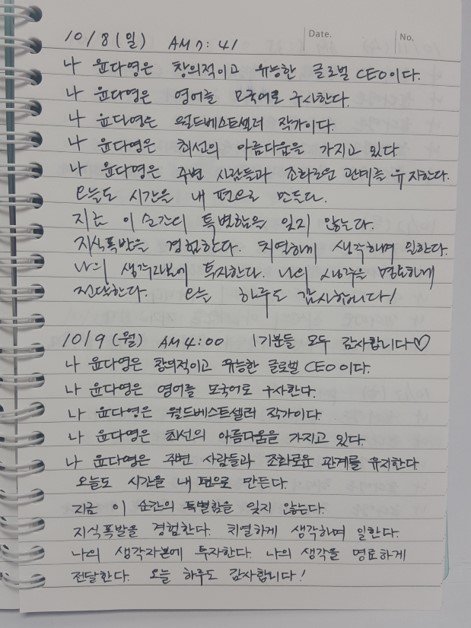 Date.
No.
10/8(일) AM 7:41
나 윤다영은 창의적이고 유능한 글로벌 CEO이다.
나 윤다영은 영어를 모국어로 구사한다.
나 윤다영은 월드베스트셀러 작가이다.
나 윤다영은 최선의 아름다움을 가지고 있다
나 윤다영은 주변 사람들과 조화로운 관계를 유지한다.
오늘도 시간을 내 편으로 만든다.
지금 이 순간의 특별함을 잊지 않는다.
지식폭발을 경험한다. 치열하게 생각하며 일한다.
나의 생각자본에 투자한다. 나의 생각을 명료하게
전달한다. 오늘 하루도 감사합니다!
10/9(월) AM 4:00 기분들 모두 감사합니다♡
나 윤다영은 창의적이고 유능한 글로벌 CEO이다.
나 윤다영은 영어를 모국어로 구사한다.
나 윤다영은 월드베스트셀러 작가이다.
나 윤다영은 최선의 아름다움을 가지고 있다
나 윤다영은 주변 사람들과 조화로운 관계를 유지한다
오늘도 시간을 내 편으로 만든다.
지금 이 순간의 특별함을 잊지 않는다.
지식폭발을 경험한다. 치열하게 생각하며 일한다.
나의 생각자본에 투자한다. 나의 생각을 명료하게
전달한다. 오늘 하루도 감사합니다!